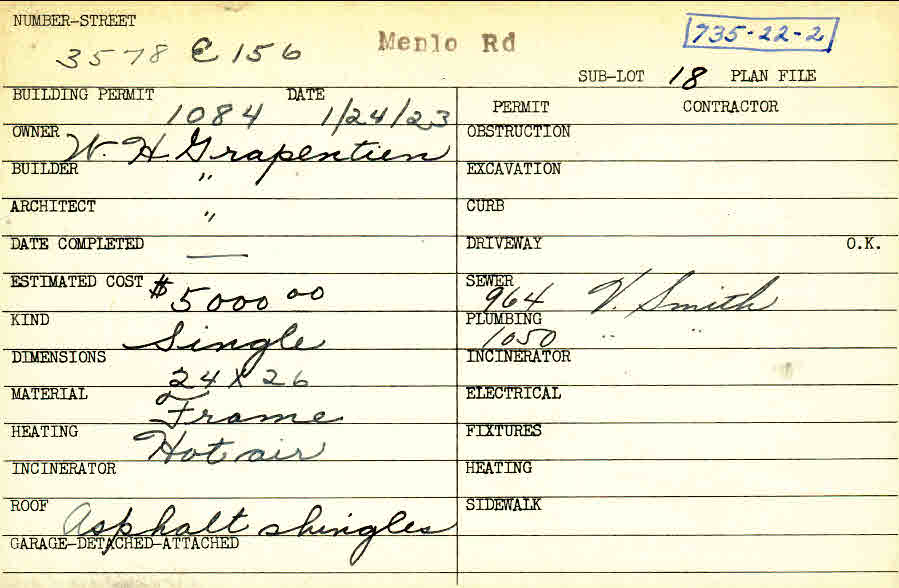 NUMBER-STREET
3578 E 156 Menlo Rd 735-22-2
SUB-LOT 18 PLAN FILE
BUILDING PERMIT 1084 DATE 1/24/23
PERMIT CONTRACTOR
OWNER W. H Grapentien
OBSTRUCTION
BUILDER "
EXCAVATION
ARCHITECT "
CURB
DATE COMPLETED —
DRIVEWAY O.K.
ESTIMATED COST $5000 00
SEWER 964 V. Smith
KIND Single
PLUMBING 1050 " "
DIMENSIONS 24 X 26
INCINERATOR
MATERIAL Frame
ELECTRICAL
HEATING Hot air
FIXTURES
INCINERATOR
HEATING
ROOF Asphalt shingles
SIDEWALK
GARAGE-DETACHED-ATTACHED